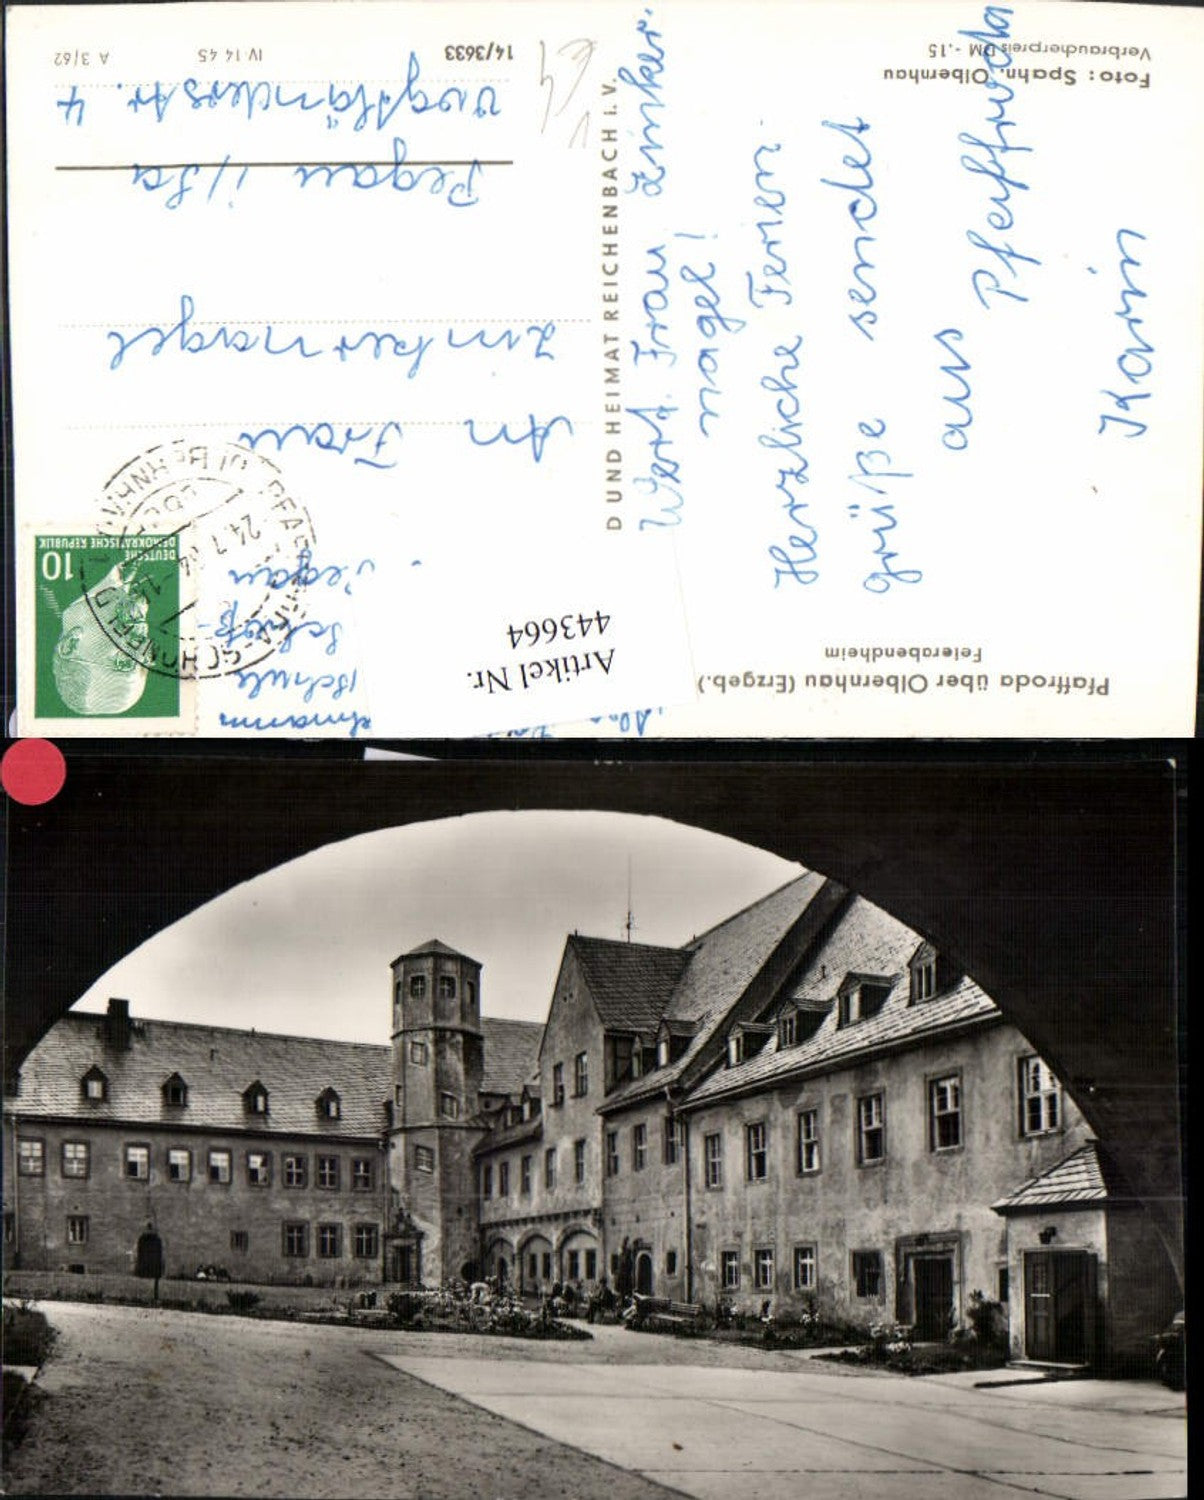 Pfaffroda über Olbernhau (Erzgeb.)
Feierabendheim
Wert. Frau Zinker-
nagel!
Herzliche Ferien-
grüße sendet
aus Pfaffroda
Karin
Foto: Spahn, Olbernhau
Verbraucherpreis DM -.15
D UND HEIMAT REICHENBACH i. V.
Artikel Nr.
443664
Schule
Pegau
DEUTSCHE
DEMOKRATISCHE REPUBLIK
10
24.7.64
An Frau
Zinkernagel
Pegau i/Sa
Vogtländerstr. 4
14/3633
IV 14 45
A 3/62